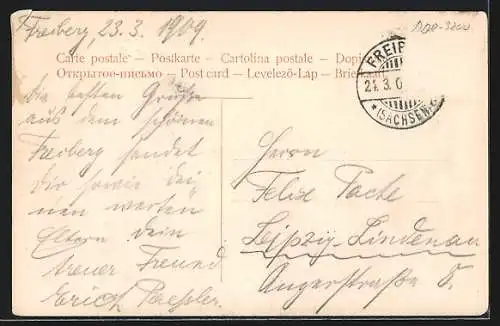 Freiberg, 23.3.1909.
DQO-3200
Carte postale – Postkarte – Cartolina postale – Dopis
Открытое-письмо – Post card – Levelező-Lap – Briefkaart
FREIBERG
21.3.0
*(SACHSEN)
Die besten Grüße
aus dem schönen
Freiberg sendet
Dir sowie dei-
nen werten
Eltern Dein
treuer Freund
Erich
Herrn
Felix
Leipzig-Lindenau
Angerstraße 8.